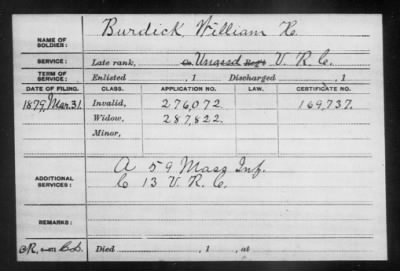 NAME OF SOLDIER: Burdick William H.
SERVICE: Late rank, Co. Unassd Reg't V. R. C.
TERM OF SERVICE: Enlisted , 1 Discharged , 1
DATE OF FILING. CLASS. APPLICATION NO. LAW. CERTIFICATE NO.
1879, Mar. 31. Invalid, 276,072 169,737.
Widow, 287,822.
Minor,
ADDITIONAL SERVICES: A 59 Mass Inf.
C 13 V. R. C.
REMARKS:
Died , 1 , at